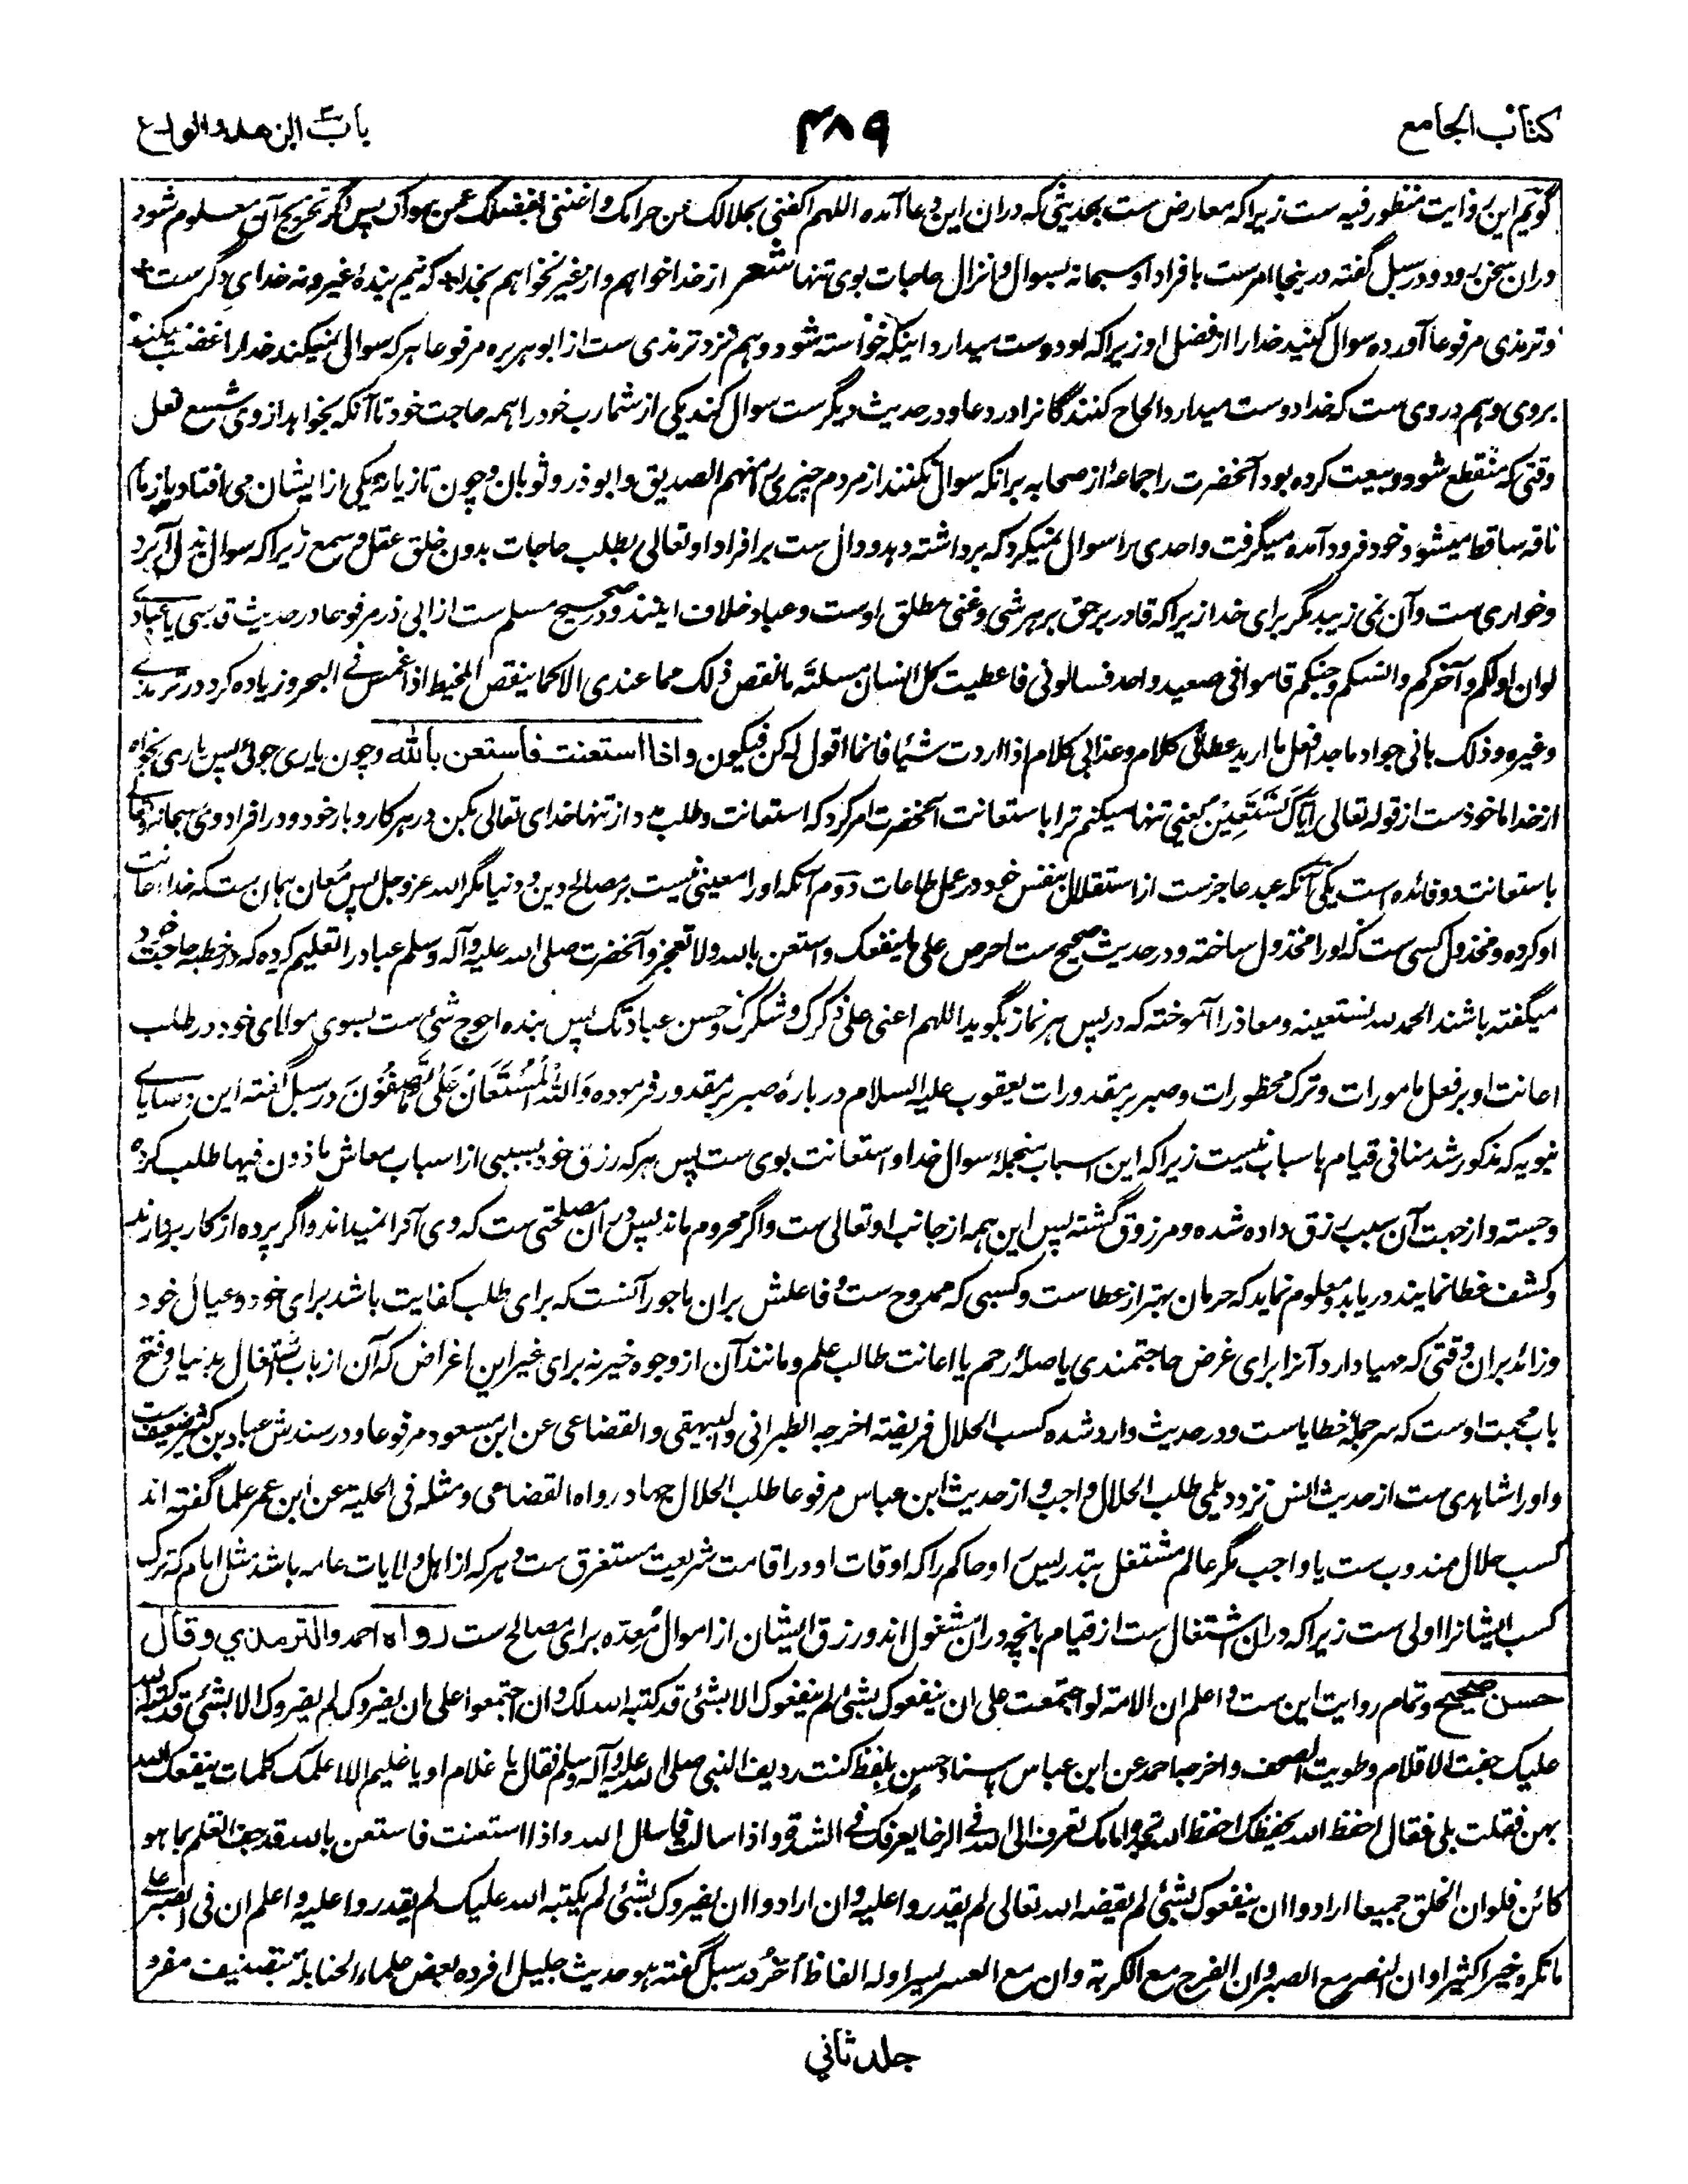 کتاب الجامع
۴۸۹
باب الزهد والورع
گویم این روایت منظور فیه ست زیراکه معارض ست بحدیثی که دران این دعا آمده اللهم اکفنی بحلالک عن حرامک و اغننی بفضلک عمن سواک پس دگر تخریج آن معلوم شود
دران سخن برود و در سبل گفته درینجا امرست بافراد او سبحانه بسوال و انزال حاجات بوی تنها شعر از خدا خواهم و از غیر نخواهم بخدا+ که نیم بندهٔ غیر و نه خدای دگرست+
و ترمذی مرفوعا آورده سوال کنید خدا را از فضل او زیراکه او دوست میدارد اینکه خواسته شود و هم نزد ترمذی ست از ابوهریره مرفوعا هرکه سوال نمیکند خدا را غضب میکند
بروی و هم در وی ست که خدا دوست میدارد الحاح کنندگانرا در دعا و در حدیث دیگر ست سوال کند یکی از شما رب خود را همه حاجت خود تا آنکه بخواهد از وی شسع نعل
وقتی که منقطع شود و بیعت کرده بود آنحضرت را جماعه از صحابه برانکه سوال نکنند از مردم چیزی منهم الصدیق و ابوذر و ثوبان و چون تازیانه یکی ازایشان می افتاد یا زمام
ناقه ساقط میشود خود فرود آمده میگرفت و احدی را سوال نمیکرد که برداشته دهد و دال ست بر افراد او تعالی بطلب حاجات بدون خلق عقل و سمع زیراکه سوال بذل آبرو
و خواری ست و آن نمی زیبد مگر برای خدا زیراکه قادر برحق بر هر شی و غنی مطلق اوست و عباد خلاف اینند و در صحیح مسلم ست از ابی ذر مرفوعا در حدیث قدسی یا عبادی
لو ان اولکم و آخرکم و انسکم و جنکم قاموا فی صعید واحد فسالونی فاعطیت کل انسان مسئلته ما نقص ذلک مما عندی الا کما ینقص المخیط اذا غمس فی البحر و زیاده کرد در ترمذی
وغیره و ذلک بانی جواد ماجد افعل ما ارید عطائی کلام و عذابی کلام اذا اردت شیئا فانما اقول له کن فیکون و اذا استعنت فاستعن بالله و چون یاری جوئی پس یاری بخواه
از خدا ماخوذست از قوله تعالی ایاک نستعین یعنی تنها میکنم ترا باستعانت آنحضرت امر کرد که استعانت و طلب مدد از تنها خدای تعالی بکن در هر کار و بار خود و در افراد وی سبحانه و تعالی
باستعانت دو فائده است یکی آنکه عبد عاجزست از استقلال بنفس خود در عمل طاعات دوم آنکه او را معینی نیست بر مصالح دین و دنیا مگر الله عز و جل پس معان همان ست که خدا اعانت
او کرده و مخذول کسی ست که او را مخذول ساخته و در حدیث صحیح ست احرص علی ما ینفعک و استعن بالله و لا تعجز و آنحضرت صلی الله علیه و آله و سلم عباد را تعلیم کرده که در خطبه حاجت خود
میگفته باشند الحمد لله نستعینه و معاذ را آموخته که در پس هر نماز بگوید اللهم اعنی علی ذکرک و شکرک و حسن عبادتک پس بنده احوج شئ ست بسوی مولای خود در طلب
اعانت او بر فعل مامورات و ترک محظورات و صبر بر مقدورات یعقوب علیه السلام در بارهٔ صبر بر مقدور فرموده وَاللهُ الْمُسْتَعَانُ عَلَی مَا تَصِفُونَ در سبل گفته این وصایای
نبویه که مذکور شد منافی قیام باسباب نیست زیراکه این اسباب منجمله سوال خدا و استعانت بوی ست پس هرکه رزق خود بسببی از اسباب معاش ماذون فیها طلب کرده
و جسته و از جهت آن سبب رزق داده شده و مرزوق گشته پس این همه از جانب او تعالی ست و اگر محروم ماند پس دران مصلحتی ست که وی آنرا نمیداند و اگر پرده از کار بردارند
و کشف غطا نمایند دریابد و معلوم نماید که حرمان بهتر از عطاست و کسبی که ممدوح ست و فاعلش بران ماجور آنست که برای طلب کفایت باشد برای خود و عیال خود
و زائد بران وقتی که مهیا دارد آنرا برای غرض حاجتمندی یا صلهٔ رحم یا اعانت طالب علم و مانند آن از وجوه خیر نه برای غیر این اغراض که آن از باب اشتغال بدنیا و فتح
باب محبت اوست که سر جمله خطایاست و در حدیث وارد شده کسب الحلال فریضة اخرجه الطبرانی و البیهقی و القضاعی عن ابن مسعود مرفوعا و در سندش عباد بن کثیر ضعیف ست
و او را شاهدی ست از حدیث انس نزد دیلمی طلب الحلال واجب و از حدیث ابن عباس مرفوعا طلب الحلال جهاد رواه القضاعی و مثله فی الحلیة عن ابن عمر علما گفته اند
کسب حلال مندوب ست یا واجب مگر عالم مشتغل بتدریس و حاکم را که اوقات او در اقامت شریعت مستغرق ست و هرکه از اهل ولایات عامه باشد مثل امام که ترک
کسب ایشانرا اولی ست زیراکه دران اشتغال ست از قیام بانچه دران مشغول اند و رزق ایشان از اموال معدّه برای مصالح ست رواه احمد والترمذي وقال
حسن صحیح و تمام روایت این ست و اعلم ان الامة لو اجتمعت علی ان ینفعوک بشئ لم ینفعوک الا بشئ قد کتبه الله لک و ان اجتمعوا علی ان یضروک لم یضروک الا بشئ قد کتبه الله
علیک جفت الاقلام و طویت الصحف و اخرجه احمد عن ابن عباس باسناد حسن بلفظ کنت ردیف النبی صلی الله علیه و آله و سلم فقال یا غلام او یا غلیم الا اعلمک کلمات ینفعک الله
بهن فقلت بلی فقال احفظ الله یحفظک احفظ الله تجده امامک تعرف الی الله فی الرخا یعرفک فی الشدة و اذا سالت فاسئل الله و اذا استعنت فاستعن بالله قد جف القلم بما هو
کائن فلو ان الخلق جمیعا ارادوا ان ینفعوک بشئ لم یقضه الله تعالی لم یقدروا علیه و ان ارادوا ان یضروک بشئ لم یکتبه الله علیک لم یقدروا علیه و اعلم ان فی الصبر علی
ما تکره خیرا کثیرا و ان النصر مع الصبر و ان الفرج مع الکربة و ان مع العسر یسرا و له الفاظ اُخَرُ در سبل گفته هو حدیث جلیل افرده بعض علماء الحنابلة بتصنیف مفرد
جلد ثاني